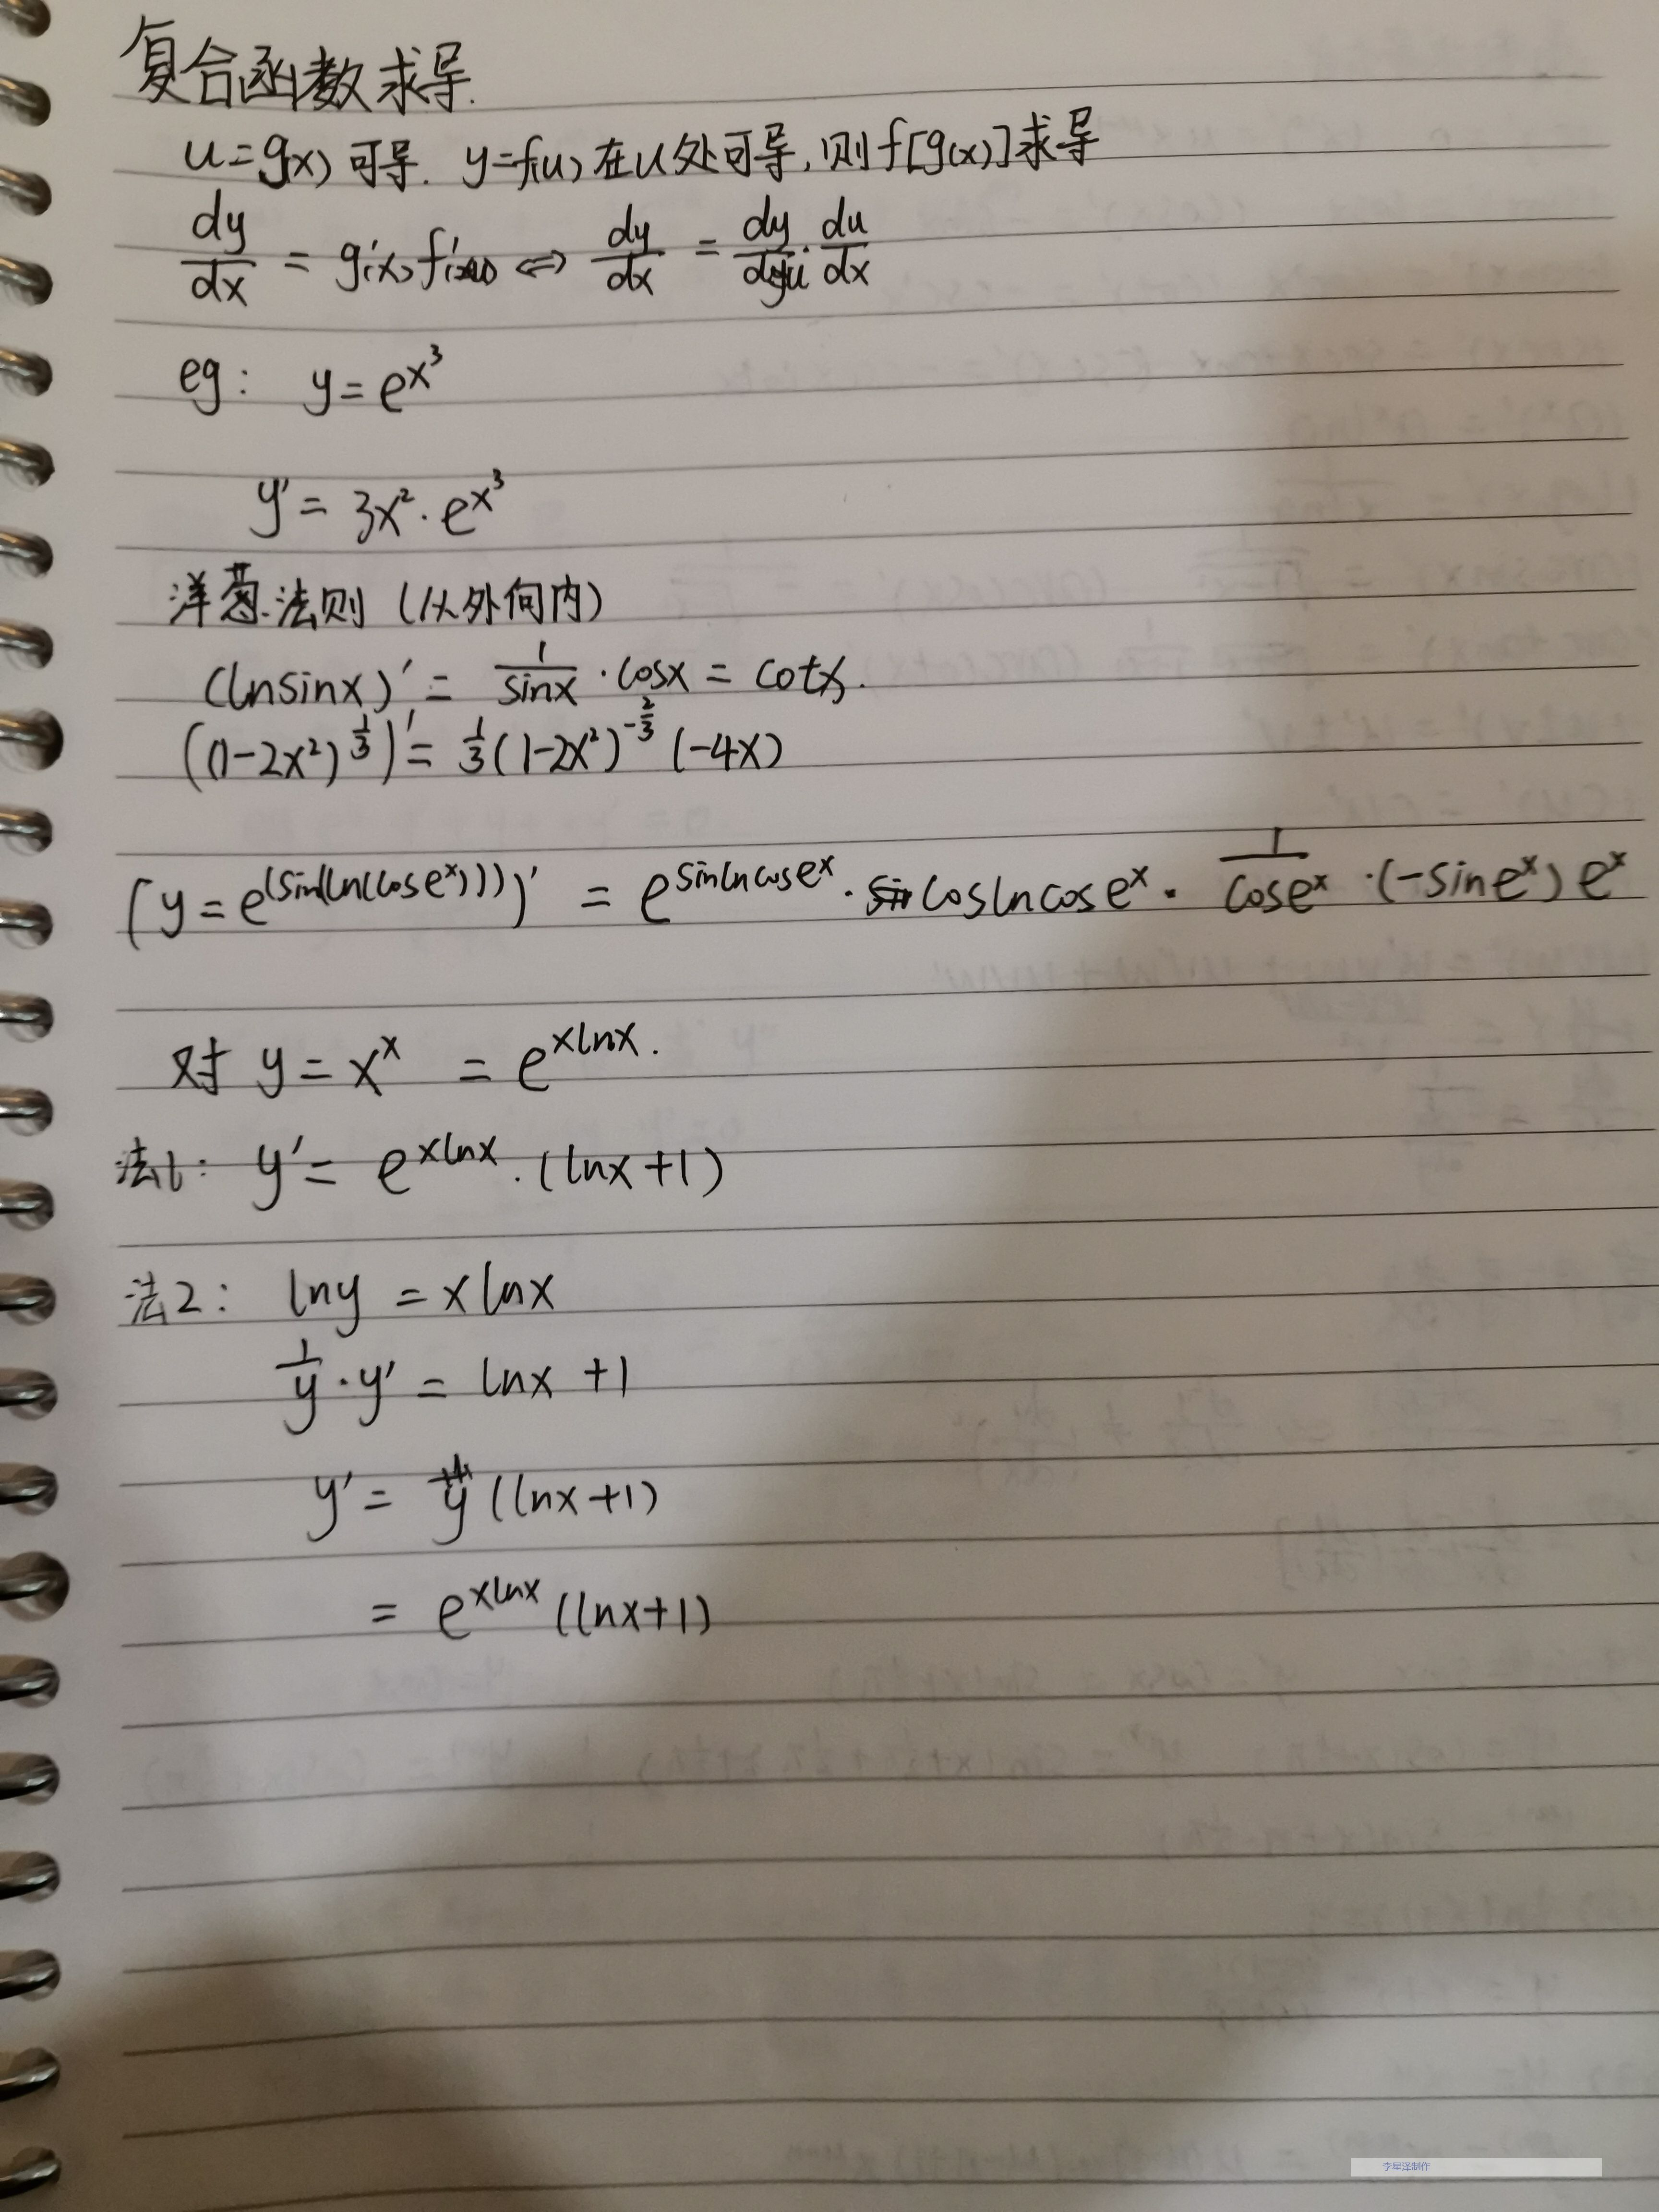 复合函数求导.
u=g(x)可导. y=f(u)在u处可导,则f[g(x)]求导
dy/dx = g'(x)f'(u) ⇔ dy/dx = dy/du · du/dx
eg: y=e^{x^3}
y'=3x²·e^{x^3}
洋葱法则(从外向内)
(lnsinx)'= 1/sinx ·cosx = cotx.
((1-2x²)^{1/3})'= 1/3(1-2x²)^{-2/3}(-4x)
(y=e^{(sin(ln(cose^x)))})' = e^{sinlncose^x}·coslncose^x· 1/cose^x ·(-sine^x)e^x
对 y=x^x = e^{xlnx}.
法1: y'= e^{xlnx}·(lnx+1)
法2: lny = xlnx
1/y·y' = lnx+1
y'= y(lnx+1)
= e^{xlnx}(lnx+1)
李星泽制作